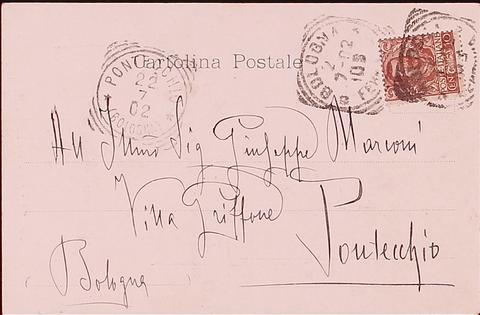 Cartolina Postale
PONTECCHIO
22
7
02
(BOLOGNA)
BOLOGNA
7-02
10S
FERROVIA
All Illmo Sig Giuseppe Marconi
Villa Griffone
Pontecchio
(Bologna)